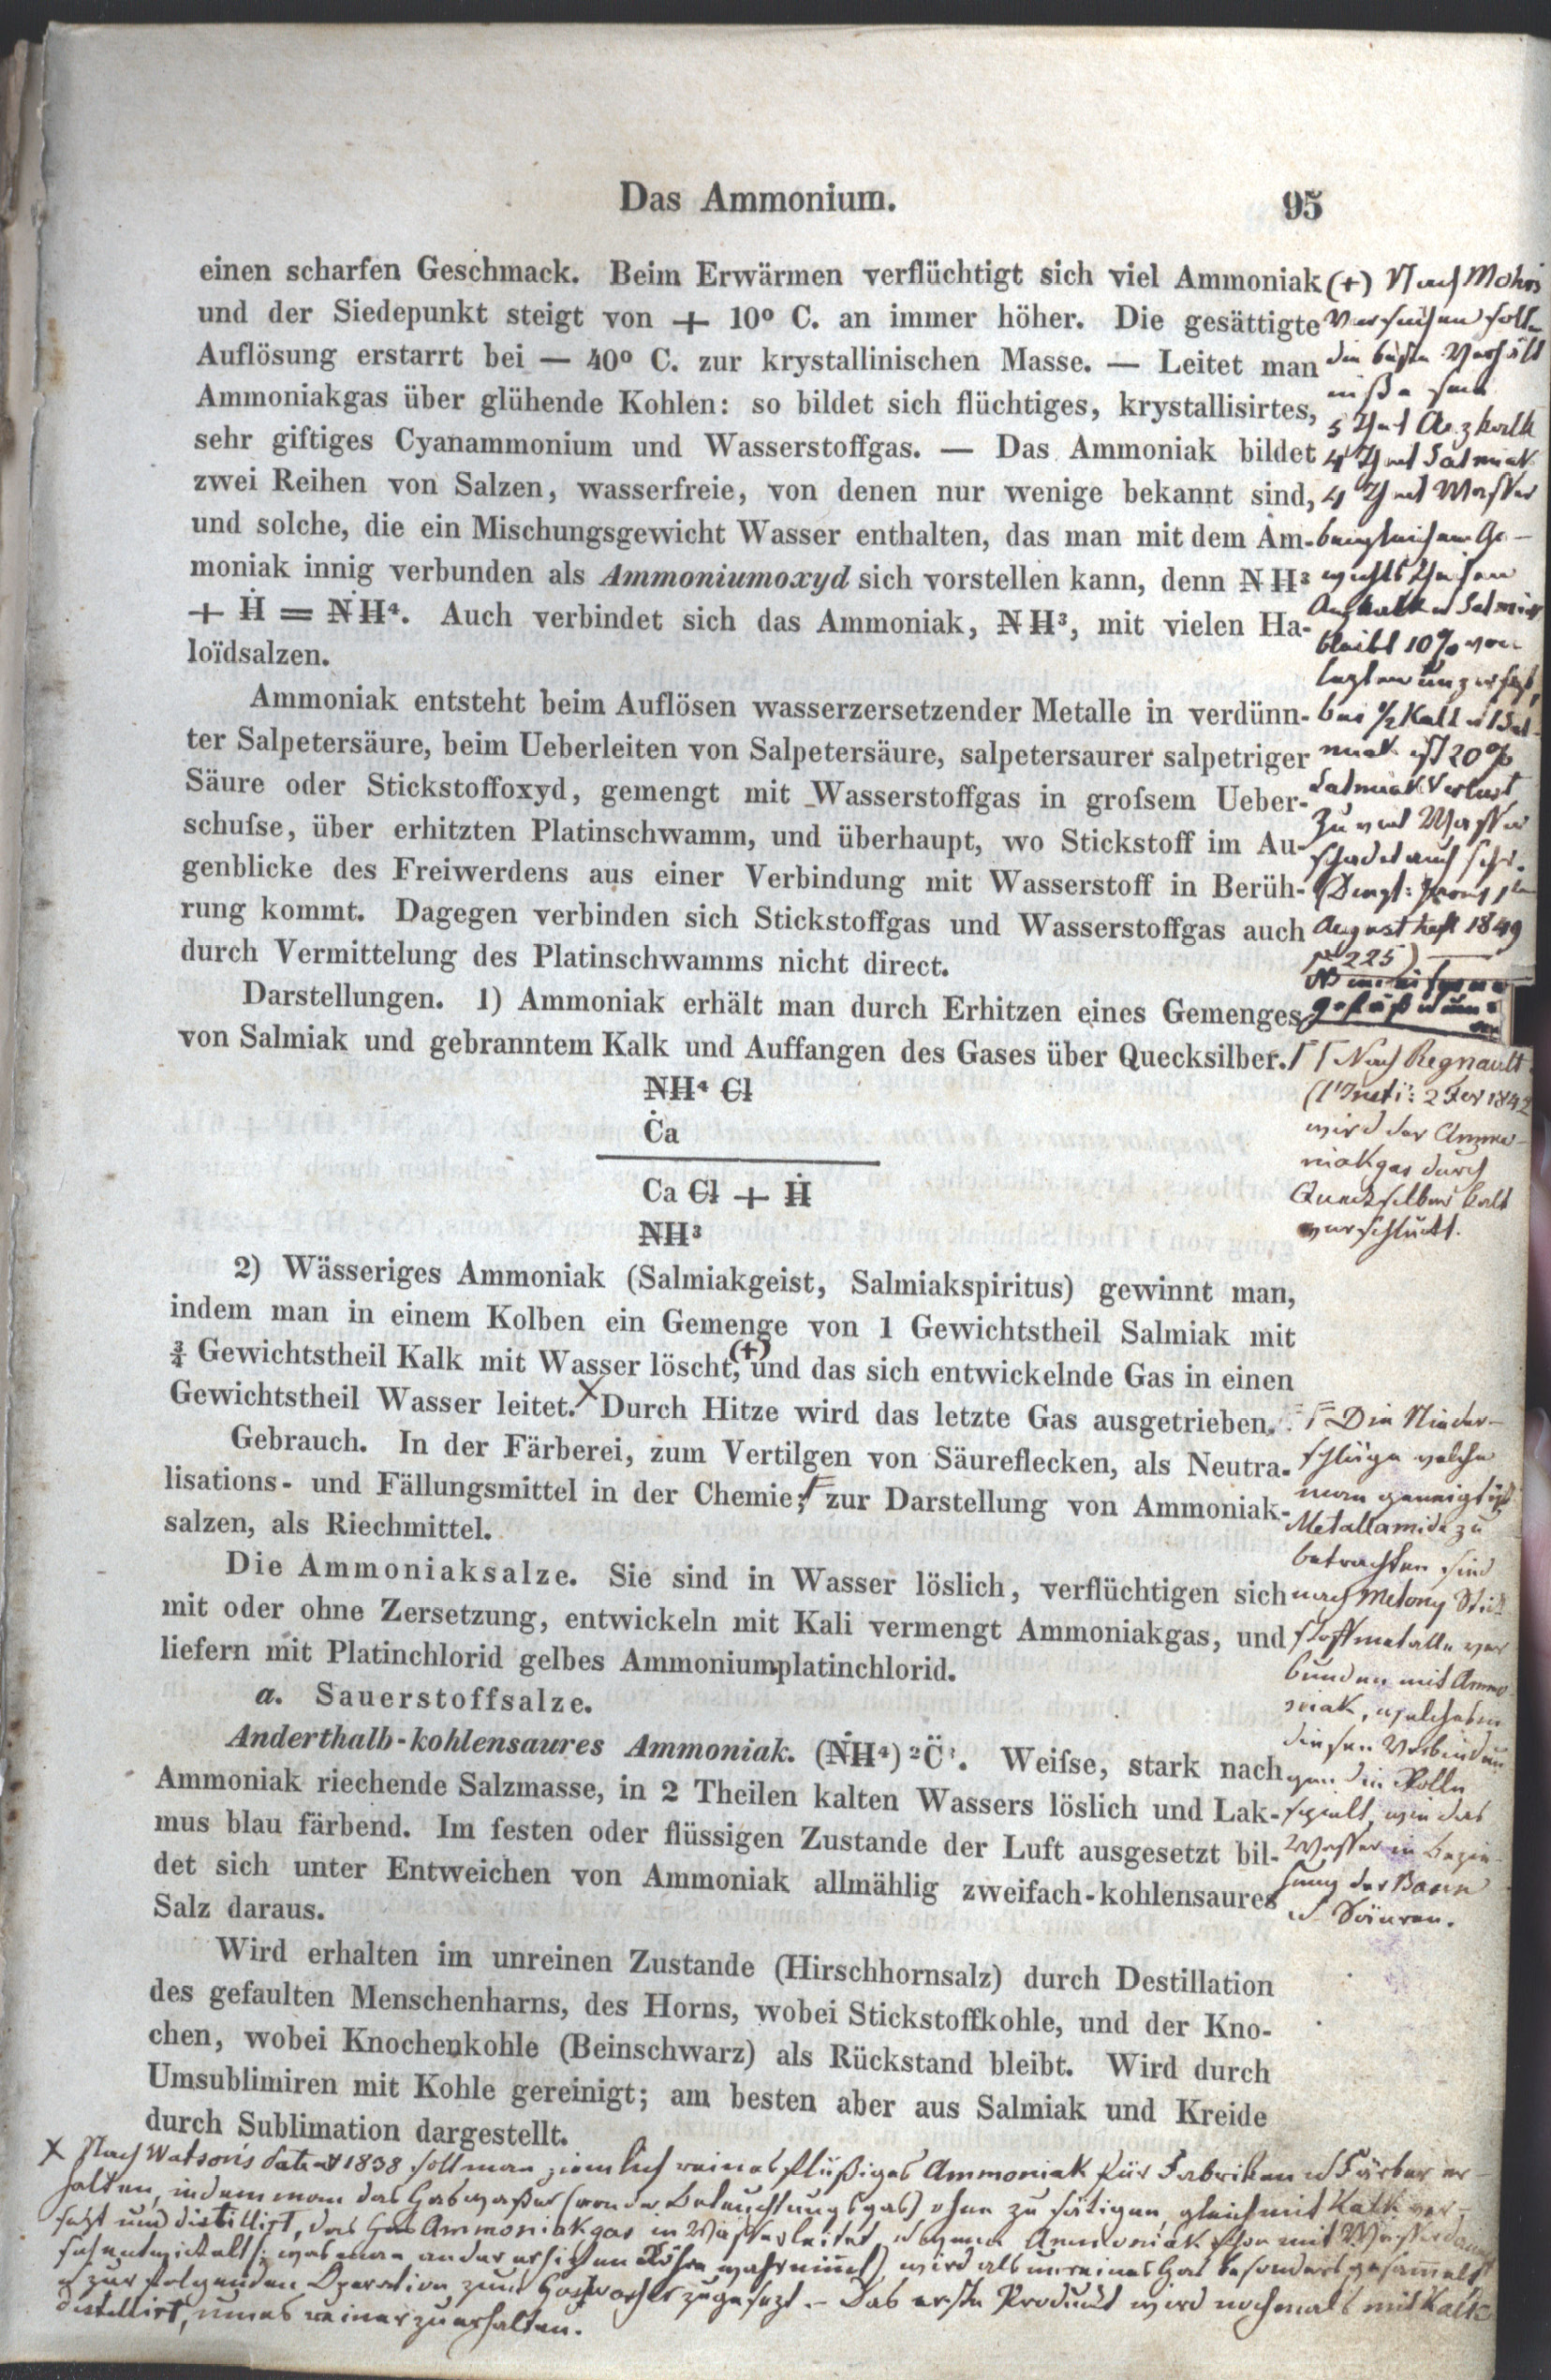 Das Ammonium.
95
einen scharfen Geschmack. Beim Erwärmen verflüchtigt sich viel Ammoniak
und der Siedepunkt steigt von + 10º C. an immer höher. Die gesättigte
Auflösung erstarrt bei — 40º C. zur krystallinischen Masse. — Leitet man
Ammoniakgas über glühende Kohlen: so bildet sich flüchtiges, krystallisirtes,
sehr giftiges Cyanammonium und Wasserstoffgas. — Das Ammoniak bildet
zwei Reihen von Salzen, wasserfreie, von denen nur wenige bekannt sind,
und solche, die ein Mischungsgewicht Wasser enthalten, das man mit dem Am-
moniak innig verbunden als Ammoniumoxyd sich vorstellen kann, denn N̶H̶³
+ Ḣ̶ = Ṅ̶H̶⁴. Auch verbindet sich das Ammoniak, N̶H̶³, mit vielen Ha-
loïdsalzen.
Ammoniak entsteht beim Auflösen wasserzersetzender Metalle in verdünn-
ter Salpetersäure, beim Ueberleiten von Salpetersäure, salpetersaurer salpetriger
Säure oder Stickstoffoxyd, gemengt mit Wasserstoffgas in grofsem Ueber-
schufse, über erhitzten Platinschwamm, und überhaupt, wo Stickstoff im Au-
genblicke des Freiwerdens aus einer Verbindung mit Wasserstoff in Berüh-
rung kommt. Dagegen verbinden sich Stickstoffgas und Wasserstoffgas auch
durch Vermittelung des Platinschwamms nicht direct.
Darstellungen. 1) Ammoniak erhält man durch Erhitzen eines Gemenges
von Salmiak und gebranntem Kalk und Auffangen des Gases über Quecksilber.
N̶H̶⁴ C̶l̶
Ċa
Ca C̶l̶ + Ḣ̶
N̶H̶³
2) Wässeriges Ammoniak (Salmiakgeist, Salmiakspiritus) gewinnt man,
indem man in einem Kolben ein Gemenge von 1 Gewichtstheil Salmiak mit
¾ Gewichtstheil Kalk mit Wasser löscht,(+) und das sich entwickelnde Gas in einen
Gewichtstheil Wasser leitet.X Durch Hitze wird das letzte Gas ausgetrieben.
Gebrauch. In der Färberei, zum Vertilgen von Säureflecken, als Neutra-
lisations- und Fällungsmittel in der Chemie; zur Darstellung von Ammoniak-
salzen, als Riechmittel.
Die Ammoniaksalze. Sie sind in Wasser löslich, verflüchtigen sich
mit oder ohne Zersetzung, entwickeln mit Kali vermengt Ammoniakgas, und
liefern mit Platinchlorid gelbes Ammoniumplatinchlorid.
a. Sauerstoffsalze.
Anderthalb-kohlensaures Ammoniak. (Ṅ̶H̶⁴)²C̈³. Weifse, stark nach
Ammoniak riechende Salzmasse, in 2 Theilen kalten Wassers löslich und Lak-
mus blau färbend. Im festen oder flüssigen Zustande der Luft ausgesetzt bil-
det sich unter Entweichen von Ammoniak allmählig zweifach-kohlensaures
Salz daraus.
Wird erhalten im unreinen Zustande (Hirschhornsalz) durch Destillation
des gefaulten Menschenharns, des Horns, wobei Stickstoffkohle, und der Kno-
chen, wobei Knochenkohle (Beinschwarz) als Rückstand bleibt. Wird durch
Umsublimiren mit Kohle gereinigt; am besten aber aus Salmiak und Kreide
durch Sublimation dargestellt.
(+) Nach Mohrs
Versuchen sollen
die besten Verhält
niße sein
5 Aezkalk
4 Salmiak
4 Wasser
bei gleichem Ge-
wichts
Aezkalk u Salmiak
bleibt 10% von
leztem unzersezt,
bei ½ Kalk
miak ist 20%
Salmiak Verlust
Zu viel Wasser
schadet auch sehr.
August heft 1849
225)
Nach Regnault
2 1842
wird das Ammo-
niakgas durch
Quecksilber bald
verschluckt.
Die Nieder-
schläge welche
man geneigt ist
Metallamide zu
betrachten sind
nach Stick
stoffmetalle ver
bunden mit Ammo
niak, welches in
diesen Verbindun
gen die Rolle
spielt, wie das
Wasser in Bezie-
hung der Basen
u Säuren.
X Nach Watson's 1838 soll man ziemlich reines flüßiges Ammoniak für Fabriken u Färber er-
halten, indem man das Gaswaßer (von der Beleuchtungsgas) ohne zu sätigen, gleich mit Kalk ver-
sezt und distillirt, das Ammoniakgas in Wasser leitet
wird als unreines Gas besonders gesammelt
u zur folgenden Operation zum Gaswasser zugesezt. – Das erste Produckt wird nochmals mit Kalk
distillirt, um es reiner zu erhalten.